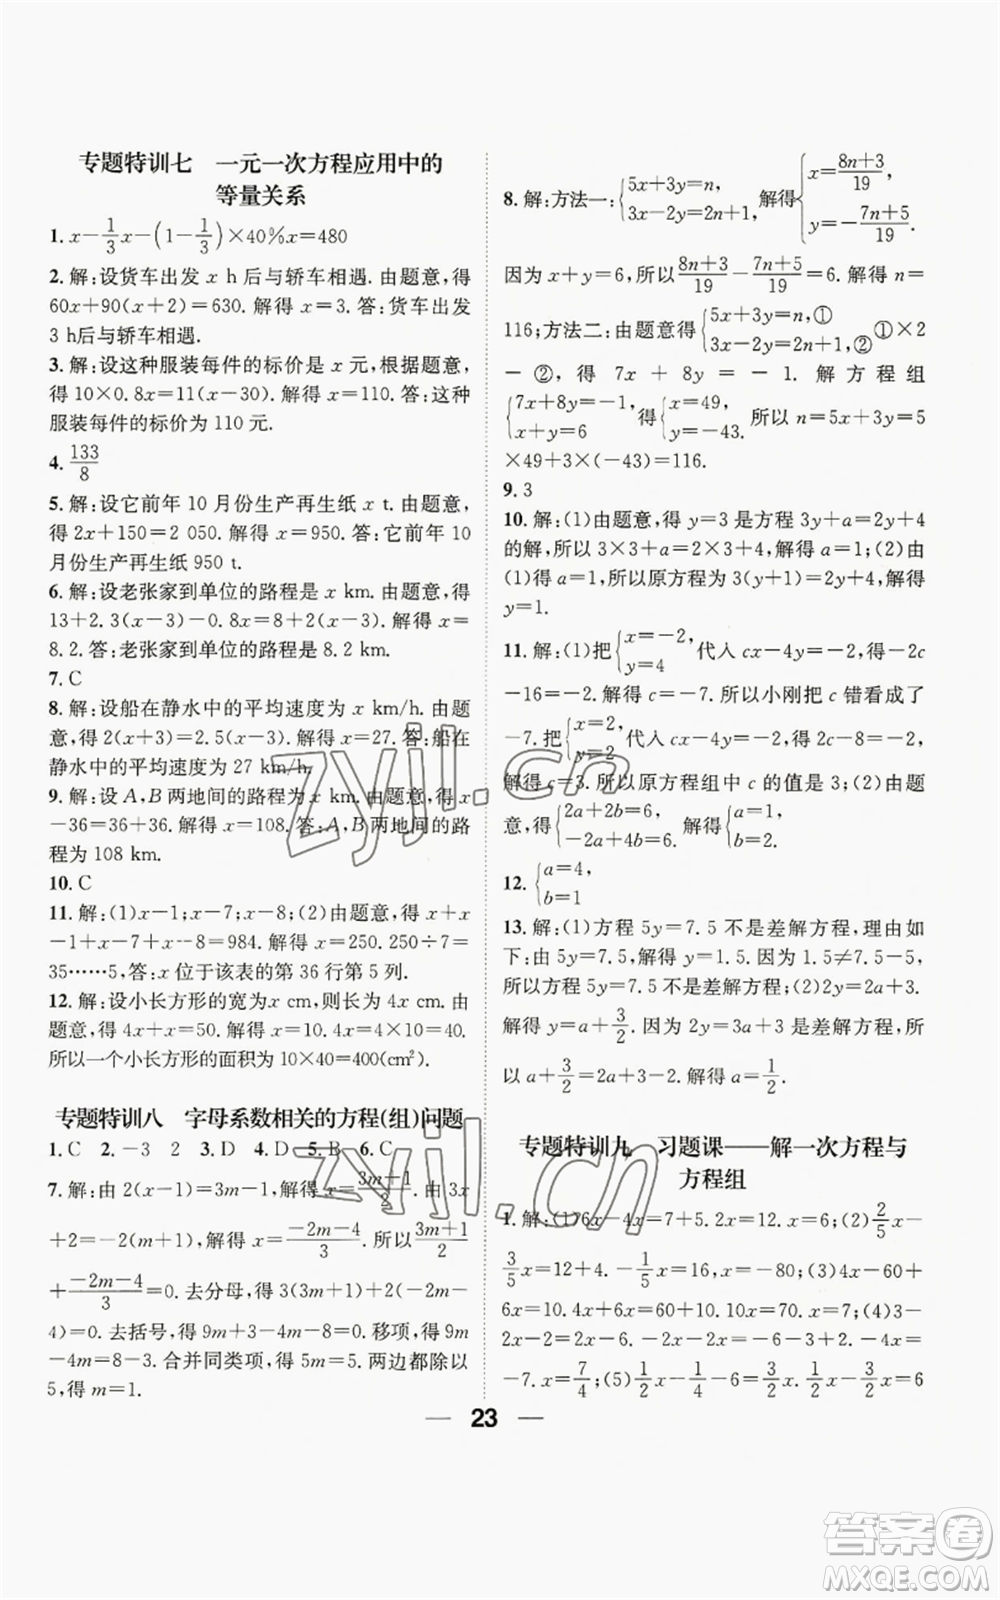 专题特训七 一元一次方程应用中的
等量关系
1. x-\frac{1}{3}x-(1-\frac{1}{3})×40%x=480
2. 解:设货车出发 x h后与轿车相遇. 由题意,得
60x+90(x+2)=630. 解得 x=3. 答:货车出发
3 h后与轿车相遇.
3. 解:设这种服装每件的标价是 x 元,根据题意,
得 10×0.8x=11(x-30). 解得 x=110. 答:这种
服装每件的标价为 110 元.
4. \frac{133}{8}
5. 解:设它前年 10 月份生产再生纸 x t. 由题意,
得 2x+150=2 050. 解得 x=950. 答:它前年 10
月份生产再生纸 950 t.
6. 解:设老张家到单位的路程是 x km. 由题意,得
13+2.3(x-3)-0.8x=8+2(x-3). 解得 x=
8.2. 答:老张家到单位的路程是 8.2 km.
7. C
8. 解:设船在静水中的平均速度为 x km/h. 由题
意,得 2(x+3)=2.5(x-3). 解得 x=27. 答:船在
静水中的平均速度为 27 km/h.
9. 解:设 A,B 两地间的路程为 x km. 由题意,得 x
-36=36+36. 解得 x=108. 答:A,B 两地间的路
程为 108 km.
10. C
11. 解:(1)x-1;x-7;x-8;(2)由题意,得 x+x
-1+x-7+x-8=984. 解得 x=250. 250÷7=
35……5,答:x 位于该表的第 36 行第 5 列.
12. 解:设小长方形的宽为x cm,则长为 4x cm. 由
题意,得 4x+x=50. 解得 x=10. 4x=4×10=40.
所以一个小长方形的面积为 10×40=400(cm²).
专题特训八 字母系数相关的方程(组)问题
1. C 2. -3 2 3. D 4. D 5. B 6. C
7. 解:由 2(x-1)=3m-1,解得 x=\frac{3m+1}{2}. 由 3x
+2=-2(m+1),解得 x=\frac{-2m-4}{3}. 所以\frac{3m+1}{2}
+\frac{-2m-4}{3}=0. 去分母,得 3(3m+1)+2(-2m-
4)=0. 去括号,得 9m+3-4m-8=0. 移项,得 9m
-4m=8-3. 合并同类项,得 5m=5. 两边都除以
5,得 m=1.
8. 解:方法一:{5x+3y=n, 3x-2y=2n+1, 解得{x=\frac{8n+3}{19}, y=-\frac{7n+5}{19}.
因为 x+y=6,所以\frac{8n+3}{19}-\frac{7n+5}{19}=6. 解得 n=
116;方法二:由题意得{5x+3y=n,① 3x-2y=2n+1,② ①×2
-②,得 7x+8y=-1. 解方程组
{7x+8y=-1, x+y=6 得{x=49, y=-43. 所以 n=5x+3y=5
×49+3×(-43)=116.
9. 3
10. 解:(1)由题意,得 y=3 是方程 3y+a=2y+4
的解,所以 3×3+a=2×3+4. 解得 a=1;(2)由
(1)得 a=1,所以原方程为 3(y+1)=2y+4. 解得
y=1.
11. 解:(1)把{x=-2, y=4 代入 cx-4y=-2,得-2c
-16=-2. 解得 c=-7. 所以小刚把 c 错看成了
-7. 把{x=2, y=2 代入 cx-4y=-2,得 2c-8=-2.
解得 c=3. 所以原方程组中 c 的值是 3;(2)由题
意,得{2a+2b=6, -2a+4b=6. 解得{a=1, b=2.
12. {a=4, b=1
13. 解:(1)方程 5y=7.5 不是差解方程,理由如
下:由 5y=7.5,得 y=1.5. 因为 1.5≠7.5-5,
所以方程 5y=7.5 不是差解方程;(2)2y=2a+3.
解得 y=a+\frac{3}{2}. 因为 2y=3a+3 是差解方程,所
以 a+\frac{3}{2}=2a+3-2. 解得 a=\frac{1}{2}.
专题特训九 习题课——解一次方程与
方程组
1. 解:(1)6x-4x=7+5. 2x=12. x=6;(2)\frac{2}{5}x-
\frac{3}{5}x=12+4. -\frac{1}{5}x=16. x=-80;(3)4x-60+
6x=10. 4x+6x=60+10. 10x=70. x=7;(4)3-
2x-2=x-6. -2x-x=-6+2-3. -4x=
-7. x=\frac{7}{4};(5)\frac{1}{2}x-\frac{1}{2}=2-\frac{1}{5}x-\frac{2}{5}. \frac{1}{2}x=6
23
zyjl.cn
zyjl.cn
答案圈
MXQE.COM